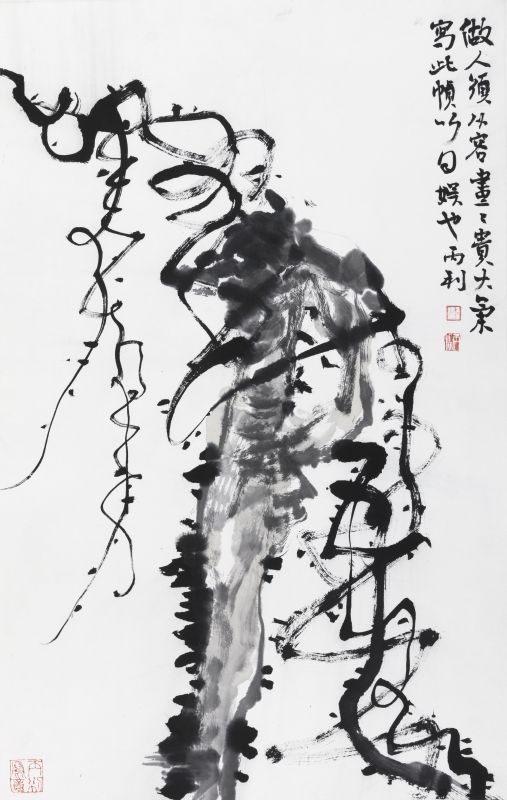 做人須从容畫〻貴大氣
寫此幀以自娛也丙利